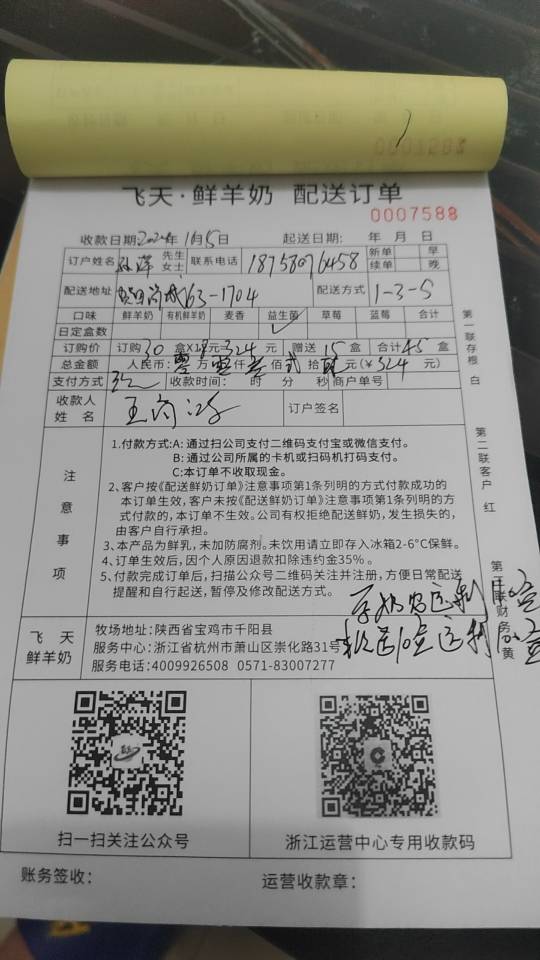 0007588
飞天·鲜羊奶 配送订单
0007588
收款日期:2024年1月5日 起送日期: 年 月 日
订户姓名 孙洋 先生 女士 联系电话 18758076458 新单 续单 早 晚
配送地址 63-1704 配送方式 1-3-5
口味 鲜羊奶 有机鲜羊奶 麦香 益生菌 草莓 蓝莓 合计
日定盒数 ✓
订购价 订购30盒X 元=324元 赠送15盒 合计45盒
总金额 人民币: 零万 仟 叁佰 贰拾 肆元(¥324元)
支付方式 收款时间: 时 分 秒 商户单号
收款人姓名 王 订户签名
注意事项
1.付款方式:A: 通过扫公司支付二维码支付宝或微信支付。
B: 通过公司所属的卡机或扫码机打码支付。
C:本订单不收取现金。
2、客户按《配送鲜奶订单》注意事项第1条列明的方式付款成功的
本订单生效, 客户未按《配送鲜奶订单》注意事项第1条列明的方
式付款的, 本订单不生效。公司有权拒绝配送鲜奶, 发生损失的,
由客户自行承担。
3、本产品为鲜乳, 未加防腐剂。未饮用请立即存入冰箱2-6°C保鲜。
4、订单生效后, 因个人原因退款扣除违约金35%。
5、付款完成订单后, 扫描公众号二维码关注并注册, 方便日常配送
提醒和自行起送, 暂停及修改配送方式。
第一联存根 白
第二联客户 红
第三联财务 黄
飞天鲜羊奶
牧场地址: 陕西省宝鸡市千阳县
服务中心: 浙江省杭州市萧山区崇化路31号
服务电话: 4009926508 0571-83007277
扫一扫关注公众号
浙江运营中心专用收款码
账务签收:
运营收款章: